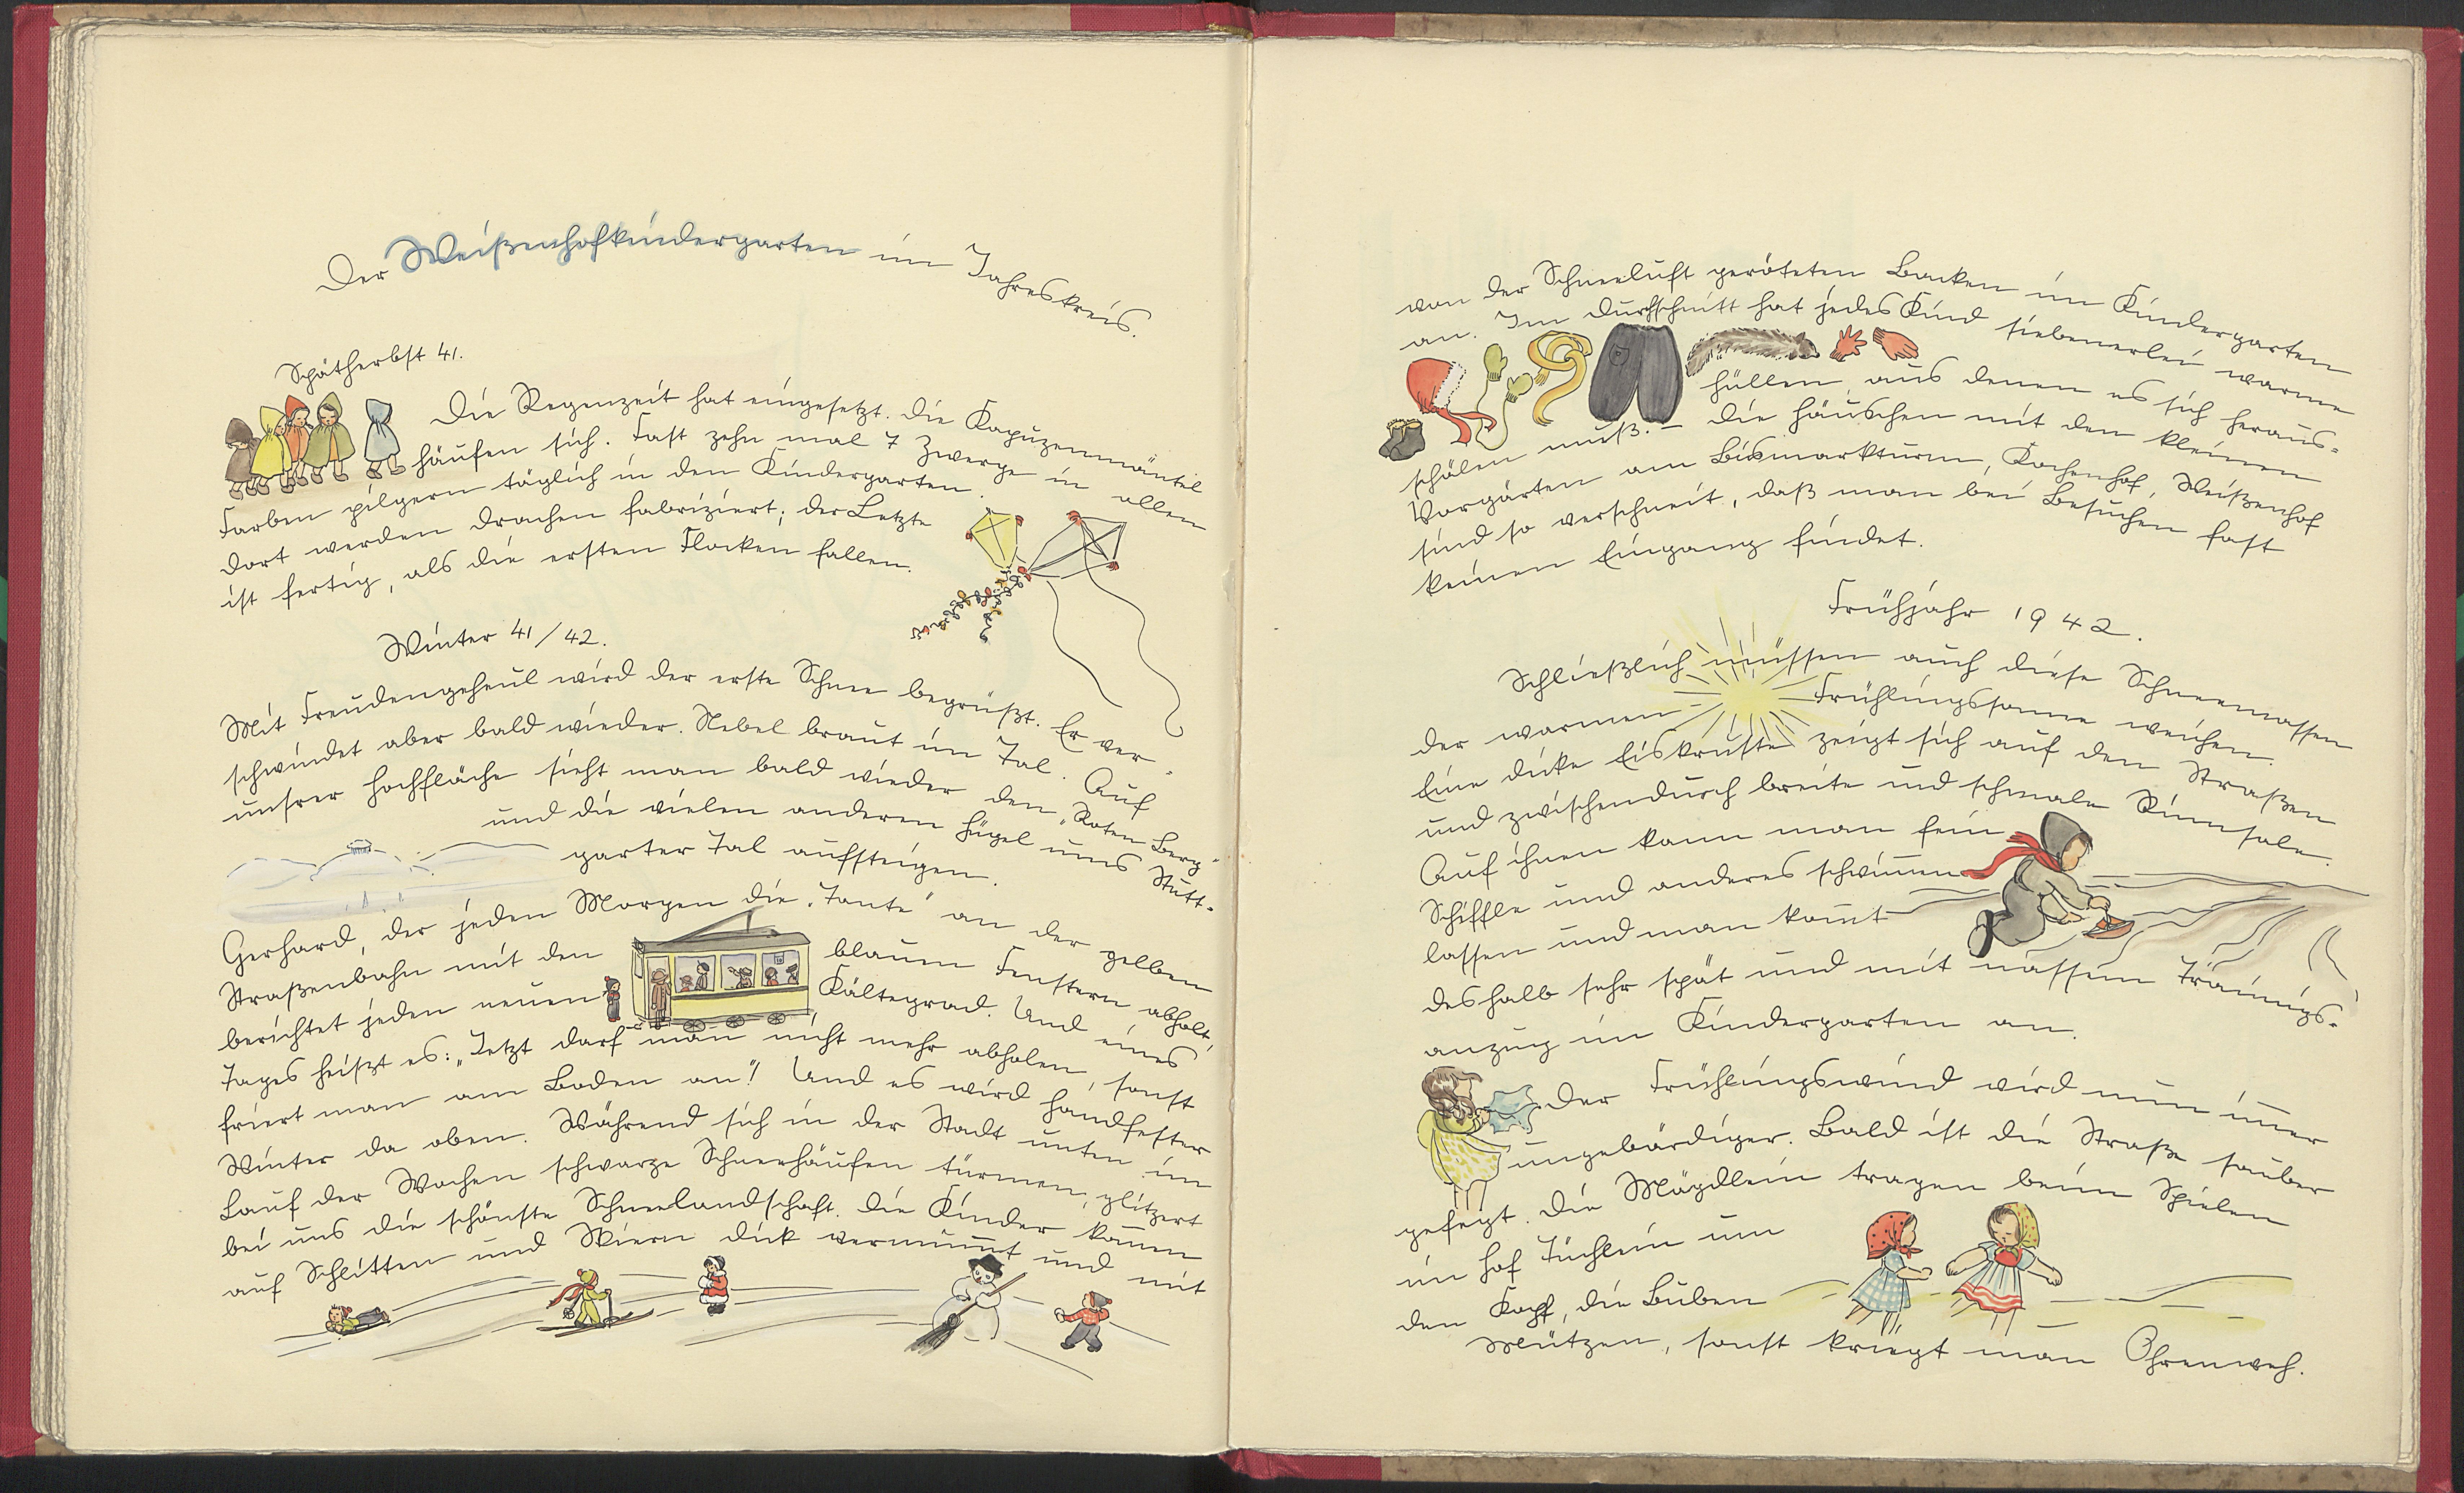 Der Weißenhofkindergarten im Jahreskreis.
Spätherbst 41.
Die Regenzeit hat eingesetzt. Die Kapuzenmäntel
häufen sich. Fast zehn mal 7 Zwerge in allen
Farben pilgern täglich in den Kindergarten.
Dort werden Drachen fabriziert; der Letzte
ist fertig, als die ersten Flocken fallen.
Winter 41/42.
Mit Freudengeheul wird der erste Schnee begrüßt. Er ver-
schwindet aber bald wieder. Nebel braut im Tal. Auf
unsrer Hochfläche sieht man bald wieder den „Roten Berg"
und die vielen anderen Hügel ums Stutt-
garter Tal aufsteigen.
Gerhard, der jeden Morgen die „Tante" an der gelben
Straßenbahn mit den blauen Fenstern abholt,
berichtet jeden neuen Kältegrad. Und eines
Tages heißt es: „Jetzt darf man nicht mehr abholen, sonst
friert man am Boden an"! Und es wird handfester
Winter da oben. Während sich in der Stadt unten im
Lauf der Wochen schwarze Schneehäufen türmen, glitzert
bei uns die schönste Schneelandschaft. Die Kinder kom̄en
auf Schlitten und Skiern dick vermum̄t und mit
von der Schneeluft geröteten Backen im Kindergarten
an. Im Durchschnitt hat jedes Kind siebenerlei warme
Hüllen, aus denen es sich heraus-
schälen muß. – Die Häuschen mit den kleinen
Vorgärten am Bismarkturm, Kochenhof, Weißenhof
sind so verschneit, daß man bei Besuchen fast
keinen Eingang findet.
Frühjahr 1942.
Schließlich müssen auch diese Schneemassen
der warmen Frühlingssonne weichen.
Eine dicke Eiskruste zeigt sich auf den Straßen
und zwischendurch breite und schmale Rinnsale.
Auf ihnen kann man fein
Schiffle und anderes schwim̄en
lassen und man kom̄t
deshalb sehr spät und mit nassem Trainings-
anzug im Kindergarten an.
Der Frühlingswind wird nun im̄er
ungebärdiger. Bald ist die Straße sauber
gefegt. Die Mägdlein tragen beim Spielen
im Hof Tüchlein um
den Kopf, die Buben
Mützen, sonst kriegt man Ohrenweh.